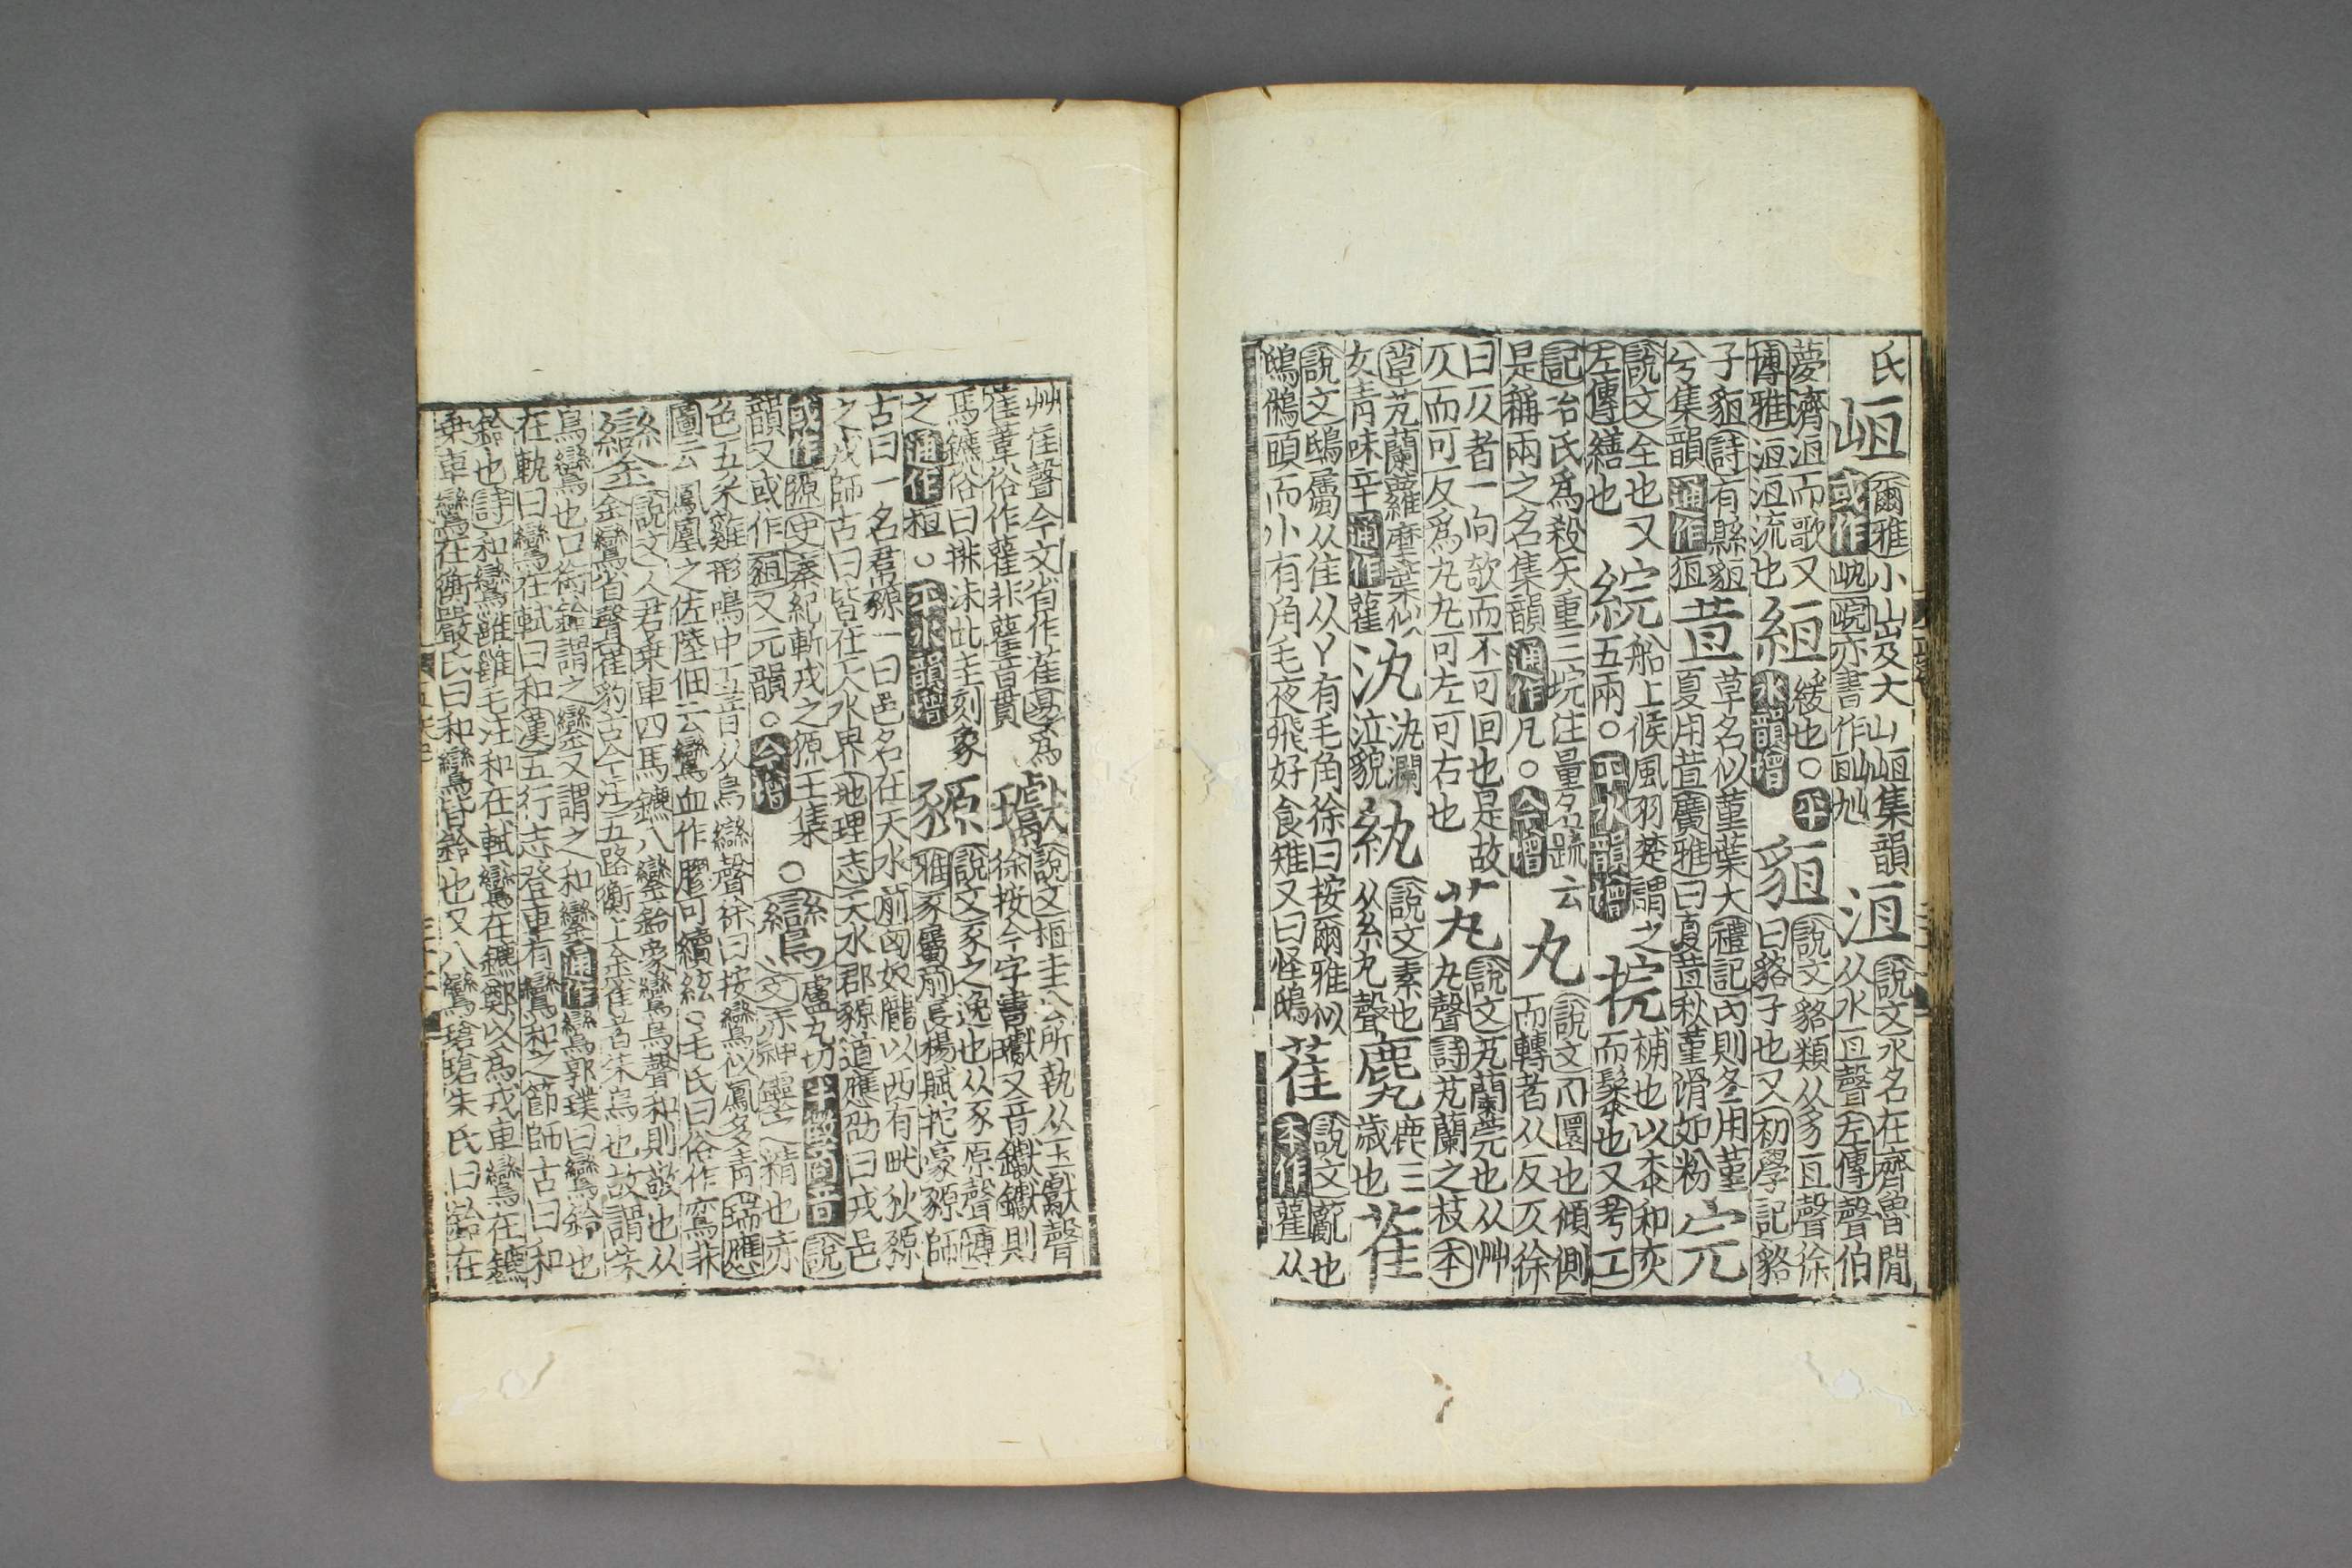 氏峘
爾雅小山岌大山峘集韻
或作㟓㟫亦書作
洹
說文水名在齊魯閒
从水亘聲左傳聲伯
夢濟洹而歌又
博雅洹洹流也
絙
緩也○平
水韻增
貆
說文貉類从豸亘聲徐
曰貉子也又初學記貉
子貆詩有縣貆
兮集韻通作狟
荁
草名似菫葉大禮記內則冬用菫
夏用荁廣雅曰夏荁秋菫滑如粉
完
說文全也又
左傳繕也
綄
船上候風羽楚謂之
五兩○平水韻增
捖
補也以桼和灰
而髹也又考工
記冶氏爲殺矢重三垸注量名疏云
是稱兩之名集韻通作凡○今增
丸
說文圜也傾側
而轉者从反仄徐
曰仄者一向欹而不可回也是故
仄而可反爲丸丸可左可右也
芄
說文芄蘭莞也从艸
丸聲詩芄蘭之枝本
草芄蘭蘿摩葉似
女青味辛通作雚
汍
汍瀾
泣貌
紈
說文素也
从糸丸聲
鹿三
歲也
萑
說文鴟屬从隹从丫有毛角徐曰按爾雅似
鴟鵂頭而小有角毛夜飛好食雉又曰怪鴟
萑
說文薍也
本作雚从
艸隹聲今文省作萑爲
萑葦俗作雚非雚音貫
瓛
說文桓圭公所執从玉獻聲
徐按今字書瓛又音钀钀則
馬鑣俗曰排沫此圭刻象
之通作桓○平水韻增
豲
說文豕之逸也从豕原聲博
雅豕屬前長楊賦拕豪豲師
古曰一名帬豲一曰邑名在天水前匈奴隴以西有畎狄豲
之戎師古曰皆在天水界地理志天水郡豲道應劭曰戎邑
或作獂史秦紀斬戎之獂王集
韻又或作貆又元韻○今增
○鸞
盧丸切半徵商音說
文亦神靈之精也赤
色五采雞形鳴中五音从鳥䜌聲徐曰按鸞似鳳多青瑞應
圖云鳳凰之佐陸佃云鸞血作膠可續絃○毛氏曰俗作鸾非
鑾
說文人君乘車四馬鑣八鑾鈴象鸞鳥聲和則敬也从
金鸞省聲崔豹古今注五路衡上金雀者朱鳥也故謂朱
鳥鸞也口銜鈴謂之鑾又謂之和鑾通作鸞郭璞曰鸞鈴也
在軌曰鸞在軾曰和漢五行志登車有鸞和之節師古曰和
鈴也詩和鸞雝雝毛注和在軾鸞在鑣鄭以爲戎車鸞在鑣
乘車鸞在衡嚴氏曰和鸞皆鈴也又八鸞瑲瑲朱氏曰鈴在